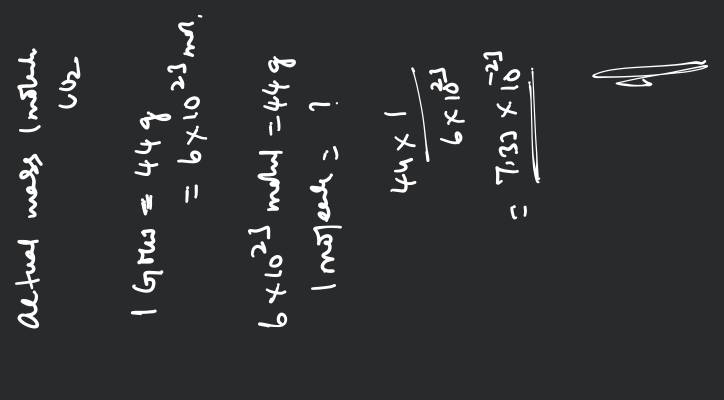 actual mass 1 molecule
CO2
1 GMM = 44 g
= 6 × 10^23 mol.
6 × 10^23 molecul = 44 g
1 molecule = ?
44 × 1
6 × 10^23
= 7.33 × 10^-23